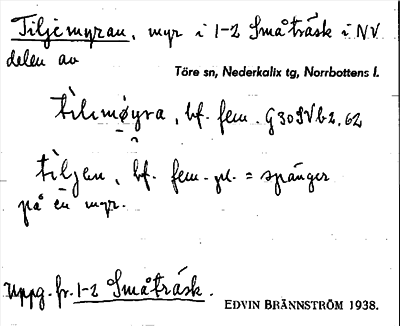 Tiljemyran, myr i 1-2 Småträsk i NV
delen av
Töre sn, Nederkalix tg, Norrbottens l.
tìlimøyra, bf. fem. G30SVb2,62
tìljen, bf. fem. pl. = spänger
på en myr.
Uppg. fr. 1-2 Småträsk.
EDVIN BRÄNNSTRÖM 1938.